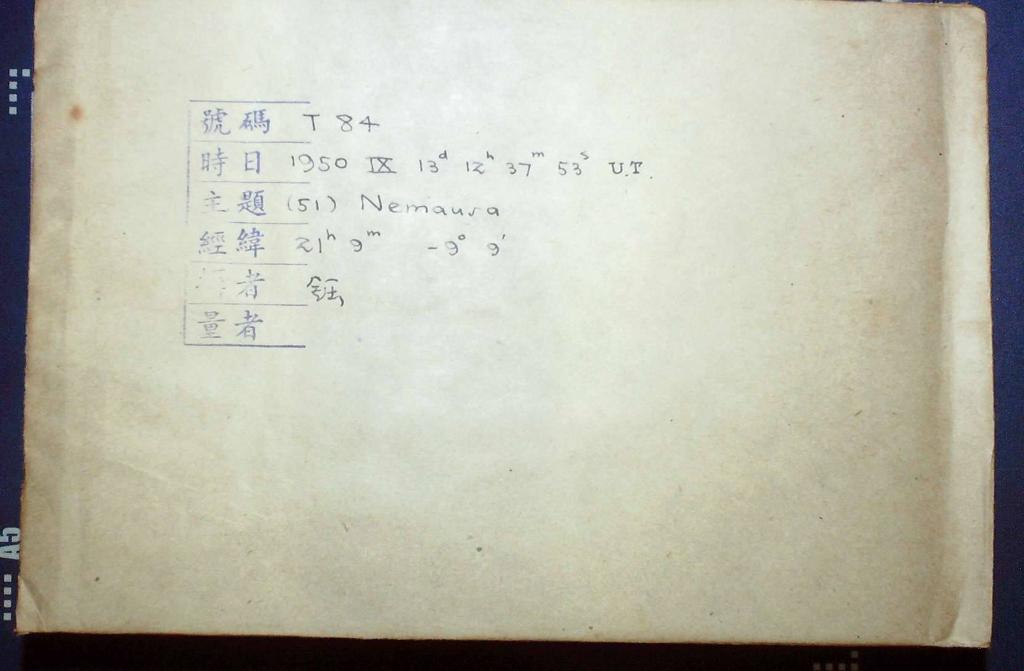 號碼 T 84
時日 1950 IX 13ᵈ 12ʰ 37ᵐ 53ˢ U.T.
主題 (51) Nemausa
經緯 21ʰ 9ᵐ -9° 9'
者
量者
A5